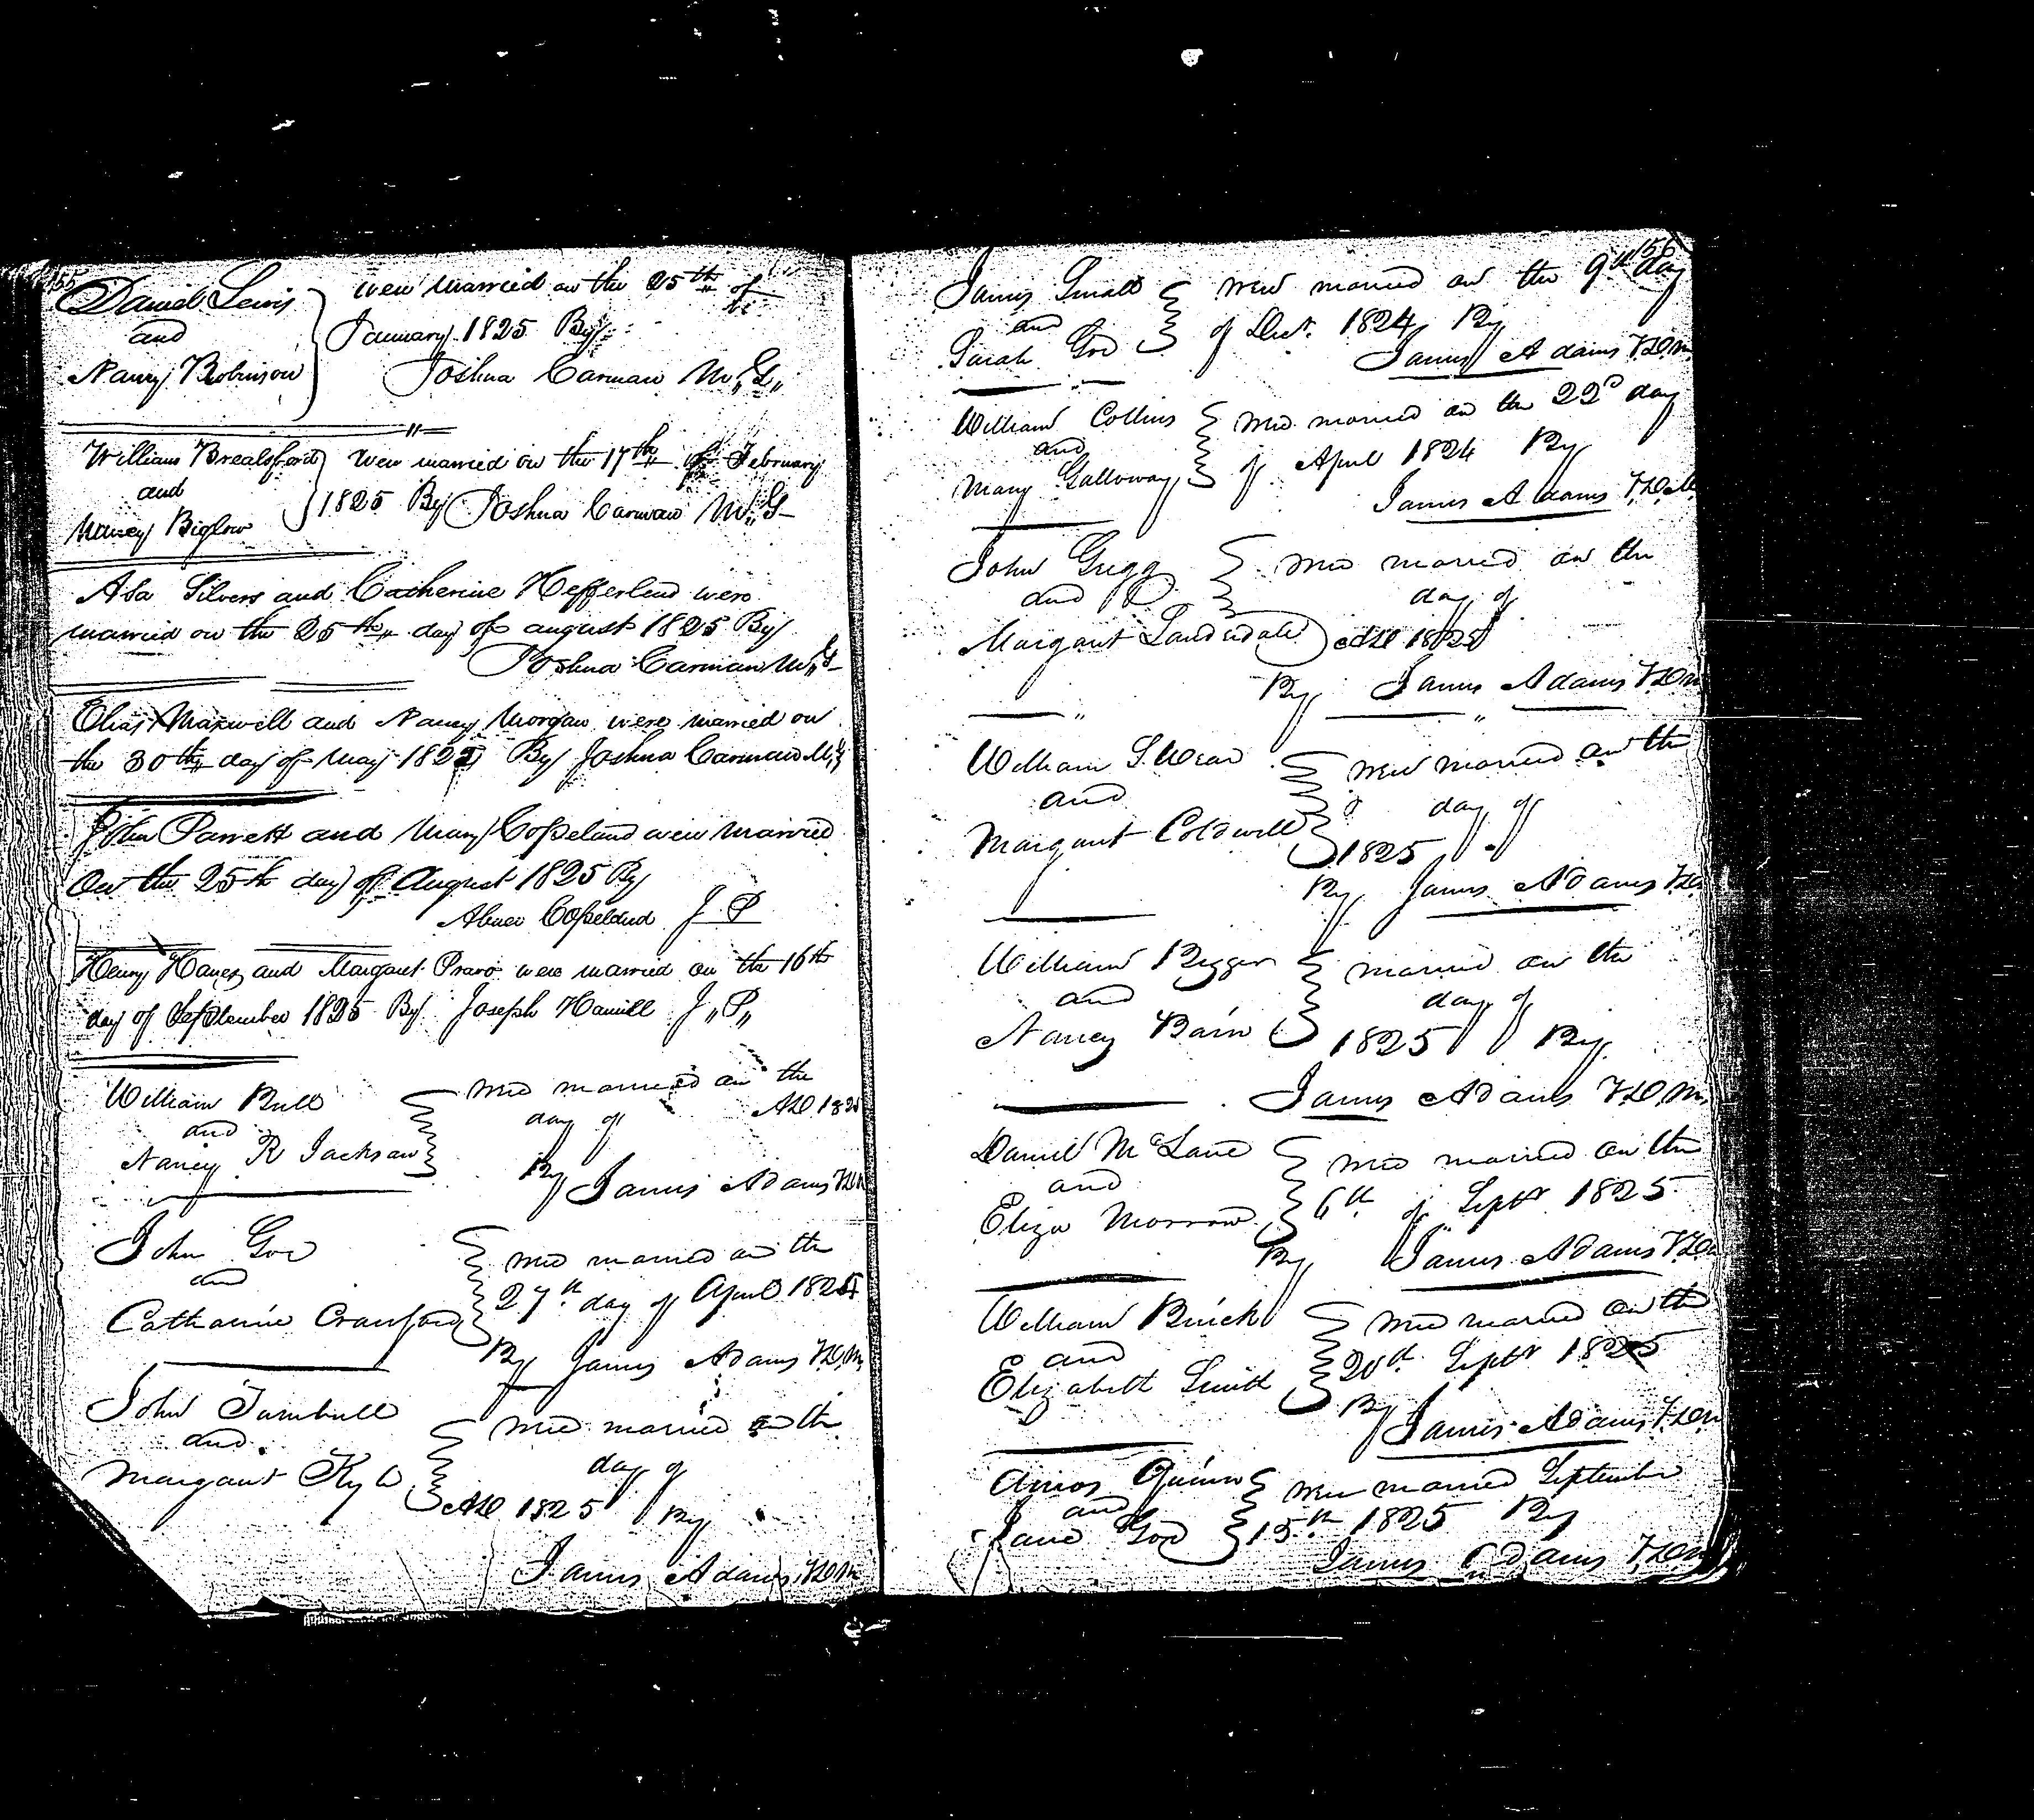 155
Daniel Lewis
and
Nancy Robinson
were married on the 25th of
January 1825 By
Joshua Carman M,,G,,
William Brealsford
and
Nancey Biglow
were married on the 17th of February
1825 By Joshua Carman M,,G
Asa Silvers and Catherine Hefferlend were
married on the 25th,, day of august 1825 By
Joshua Carman M,,G
Elias Maxwell and Nancy Morgan were married on
the 30th,, day of May 1825 By Joshua Carman M,G
John Parrett and Mary Copeland were married
On the 25th day of August 1825 By
Abner Copeland J P
Henry Hanes and Margaret were married on the 16th
day of September 1825 By Joseph Hamill J,,P,,
William Bull
and
Nancy R Jackson
were married on the
day of AD 1825
By James Adams V.D.M
John Gor
and
Catharine Crawford
were married on the
27th day of April 1824
By James Adams V.D.M,
John Turnbull
and
Margaret Kyle
were married on the
day of
AD 1825 By
James Adams V.D.M
156
James Small
and
Sarah Gor
were married on the 9th day
of Dect. 1824 By
James Adams V.D.M
William Collins
and
Mary Galloway
were married on the 22d day
of April 1824 By
James Adams V.D.M.
John Grigg
and
Margaret
were married on the
day of
AD 1825
By James Adams V.D.M
William S. Wear
and
Margaret Coldwell
were married on the
day of
1825
By James Adams V.D.
William Bigger
and
Nancy Bain
married on the
day of
1825 By
James Adams V.D.M,
Daniel McLane
and
Eliza Morrow
were married on the
6th of Septr 1825
By James Adams V.D.M
William Buick
and
Elizabeth Smith
were married on the
20th Septr 1825
By
James Adams V.D.M
Amos Quinn
and
Jane Gor
were married September
15th 1825 By
James Adams V.D.M